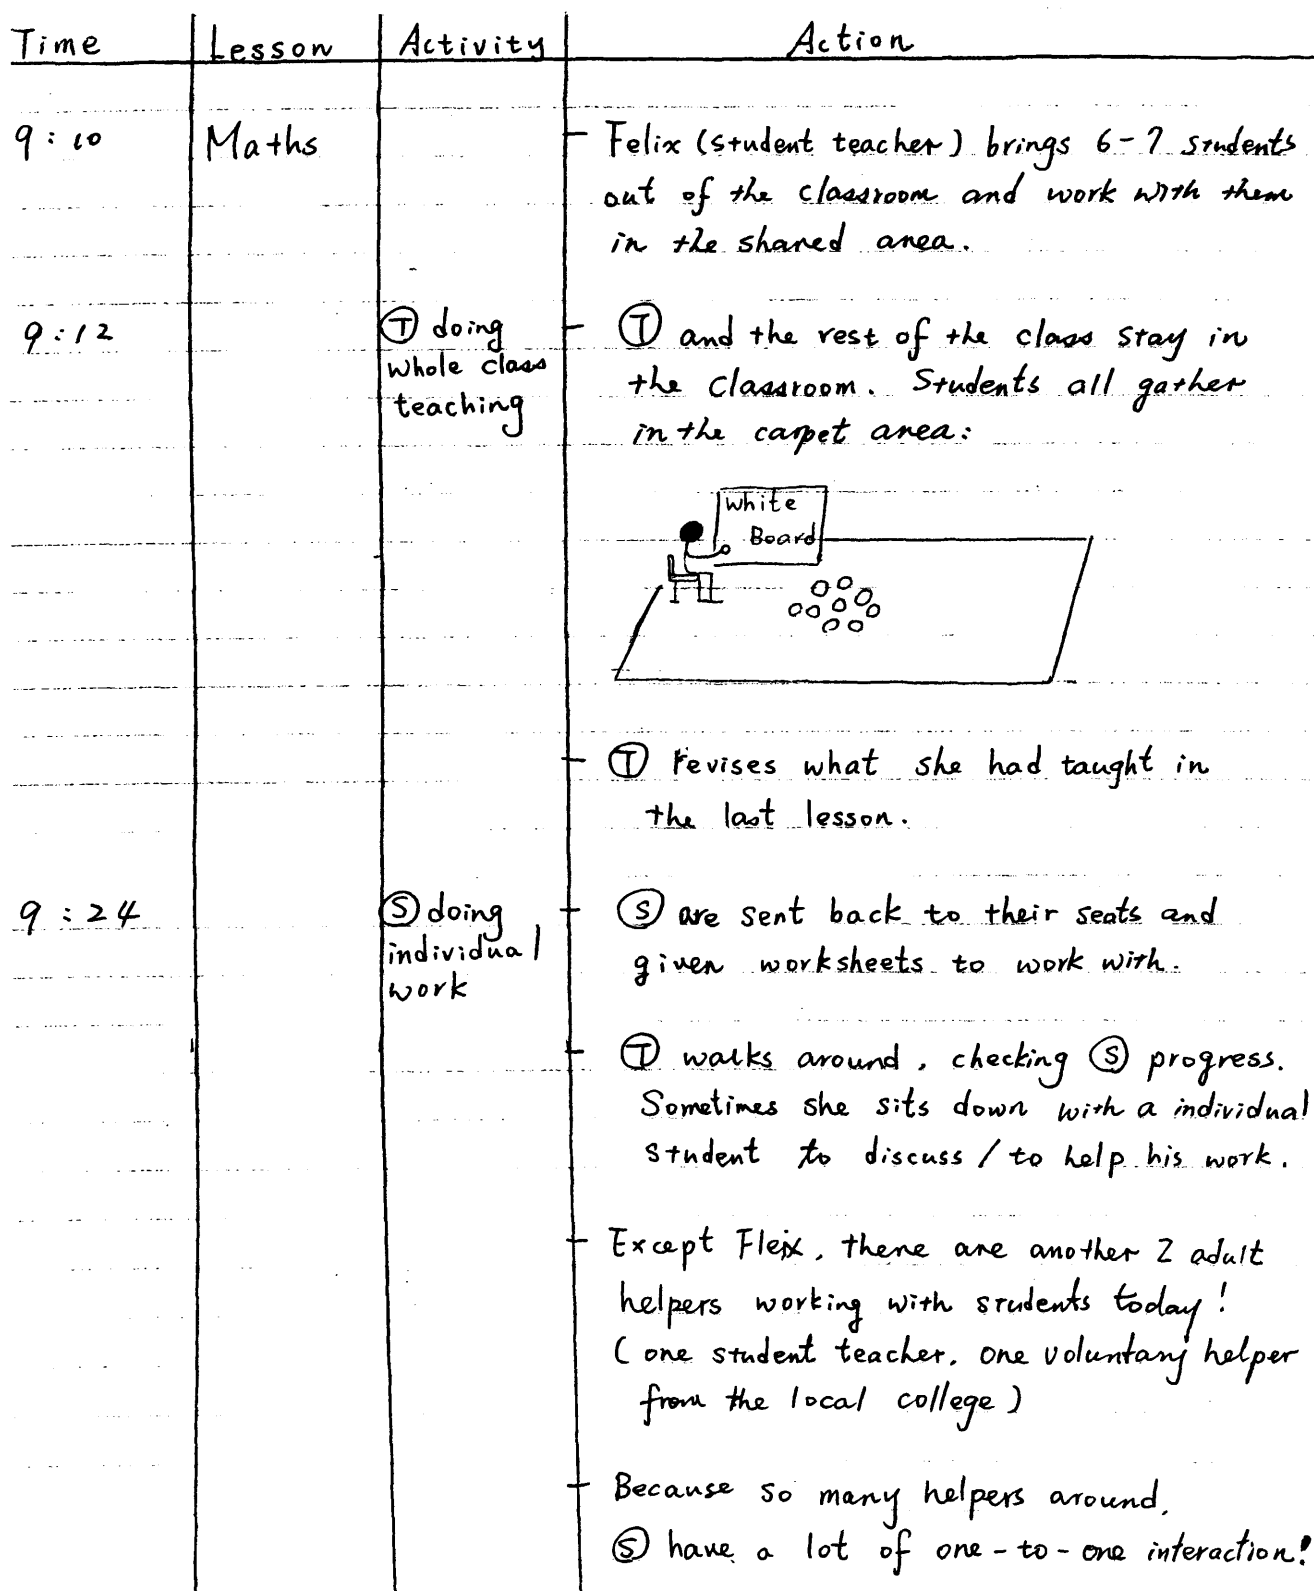 Time Lesson Activity Action
9:10 Maths - Felix (student teacher) brings 6-7 students
out of the classroom and work with them
in the shared area.
9:12 Ⓣ doing - Ⓣ and the rest of the class stay in
whole class the classroom. Students all gather
teaching in the carpet area:
White
Board
- Ⓣ revises what she had taught in
the last lesson.
9:24 Ⓢ doing - Ⓢ are sent back to their seats and
individual given worksheets to work with.
work
- Ⓣ walks around, checking Ⓢ progress.
Sometimes she sits down with a individual
student to discuss / to help his work.
- Except Fleix, there are another 2 adult
helpers working with students today!
(one student teacher, one voluntary helper
from the local college)
- Because so many helpers around,
Ⓢ have a lot of one-to-one interaction!